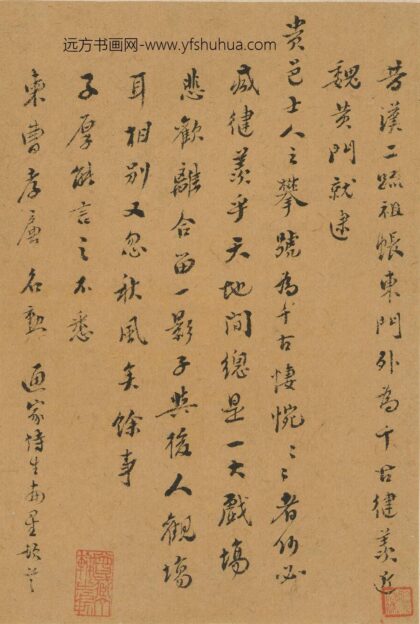 远方书画网-www.yfshuhua.com
昔漢二疏祖帳東門外為千古健羨近
魏黄門就逮
貴邑士人之攀號為千古悽惋〻〻者何必
減健羨乎天地間總是一大戲塲
悲歡離合留一影子與後人觀塲
耳相别又忽秋風矣餘事
子厚能言之不悉
東曹孝廉名勲 通家侍生